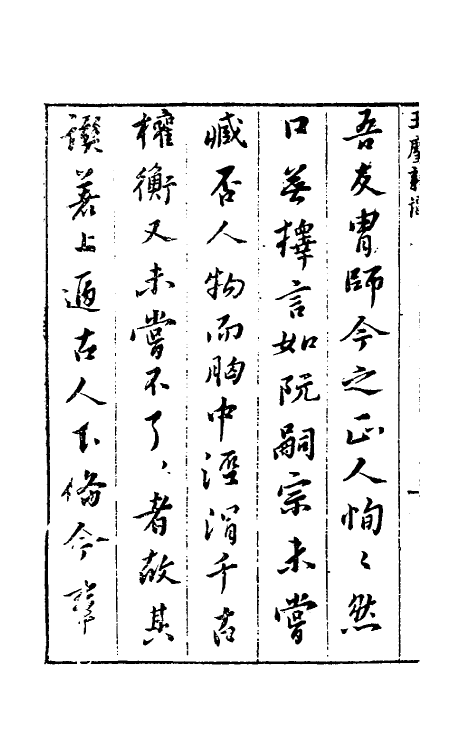 吾友胄師今之正人恂〻然
口無擇言如阮嗣宗未嘗
臧否人物而胸中涇渭千古
權衡又未嘗不了〻者故其
譔著上遡古人下備今